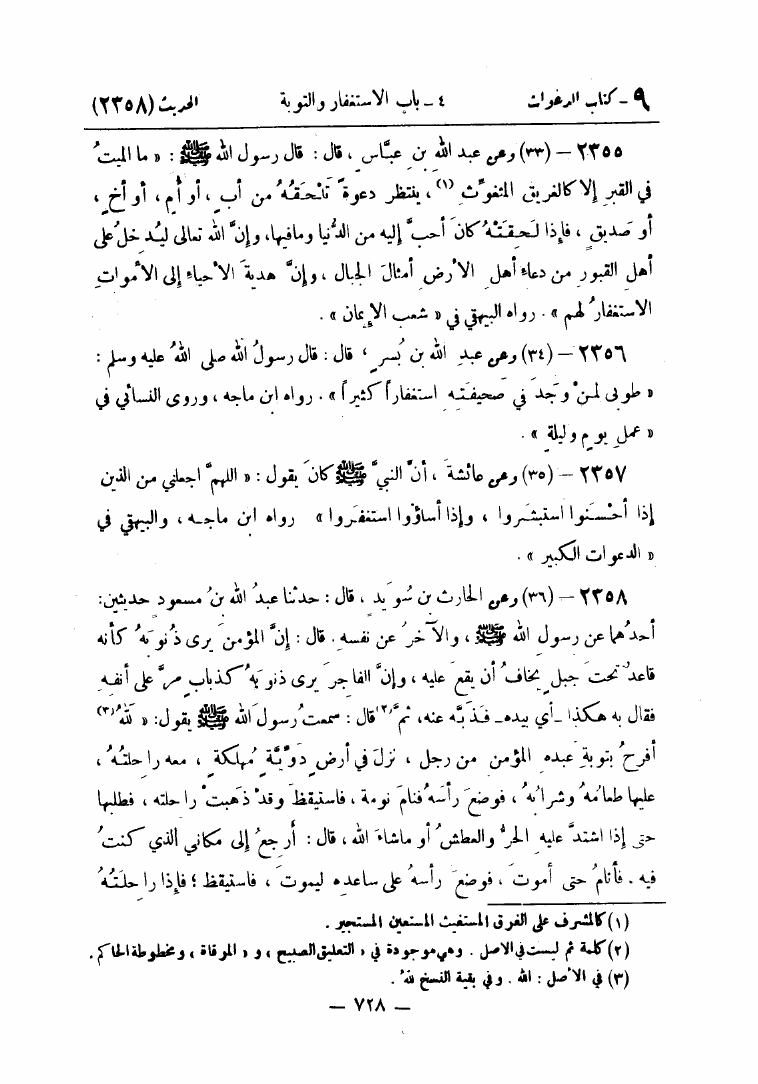 ٩ – كتاب الدعوات ٤ – باب الاستغفار والتوبة الحديث (٢٣٥٨)
٢٣٥٥ – (٣٣) وعن عبد الله بنِ عبَّاسٍ ، قال : قال رسول الله ﷺ : « ما الميتُ
في القبرِ إلا كالغريق المتغوِّثِ (١) ، ينتظر دعوةً تلْحَقُهُ من أبٍ ، أو أُمٍ ، أو أخٍ ،
أو صَديقٍ ، فإذا لَحِقَتْهُ كانَ أحبَّ إليه من الدُّنيا ومافيها، وإنَّ الله تعالى ليُدخلُ على
أهل القبورِ من دعاء أهل الأرضِ أمثالَ الجبال ، وإنَّ هديةَ الأحياء إلى الأمواتِ
الاستغفارُ لهم » . رواه البيهقي في « شعب الإيمان » .
٢٣٥٦ – (٣٤) وعن عبدِ الله بن بُسرٍ ، قال : قال رسولُ الله صلى اللهُ عليه وسلم :
« طوبى لمنْ وجَدَ في صَحيفَتِهِ استغفاراً كثيراً » . رواه ابن ماجه ، وروى النسائي في
« عملِ يومٍ وليلةٍ » .
٢٣٥٧ – (٣٥) وعن عائشةَ ، أنَّ النبيَّ ﷺ كانَ يقول : « اللهمَّ اجعلني من الذين
إذا أحْسَنوا استبشَروا ، وإذا أساؤوا استغفَروا » رواه ابن ماجه ، والبيهقي في
« الدعوات الكبير » .
٢٣٥٨ – (٣٦) وعن الحارث بن سُوَيدٍ ، قال : حدثنا عبدُ الله بنُ مسعودٍ حديثين:
أحدُهما عن رسولِ الله ﷺ ، والآخرُ عن نفسهِ. قال : إنَّ المؤمنَ يرى ذُنوبَهُ كأنه
قاعدٌ تحتَ جبلٍ يخافُ أن يقعَ عليه ، وإنَّ الفاجرَ يرى ذنوبَهُ كذبابٍ مرَّ على أنفهِ
فقال به هكذا ـ أي بيده ـ فذَبَّه عنه، ثمَّ(٢) قال : سمعتُ رسولَ الله ﷺ يقول: « للهُ(٣)
أفرحُ بتوبةِ عبدهِ المؤمنِ من رجل ، نزلَ في أرضٍ دَوِّيَّةٍ مُهلكةٍ ، معه راحلتُهُ ،
عليها طعامُهُ وشرابُهُ ، فوضعَ رأسَهُ فنامَ نومة ، فاستيقظَ وقدْ ذهبتْ راحلته ، فطلبها
حتى إذا اشتدَّ عليهِ الحرُّ والعطشُ أو ماشاءَ الله ، قال : أرجعُ إلى مكاني الذي كنتُ
فيه . فأنامُ حتى أموتَ ، فوضعَ رأسهُ على ساعدهِ ليموتَ ، فاستيقظَ ؛ فإذا راحلَتُهُ
(١) كالمشرف على الغرق المستغيث المستعين المستجير .
(٢) كلمة ثم ليست في الاصل . وهي موجودة في « التعليق الصبيح » ، و « المرقاة » ، ومخطوطة الحاكم .
(٣) في الأصل : الله . وفي بقية النسخ للهُ .
– ٧٢٨ –